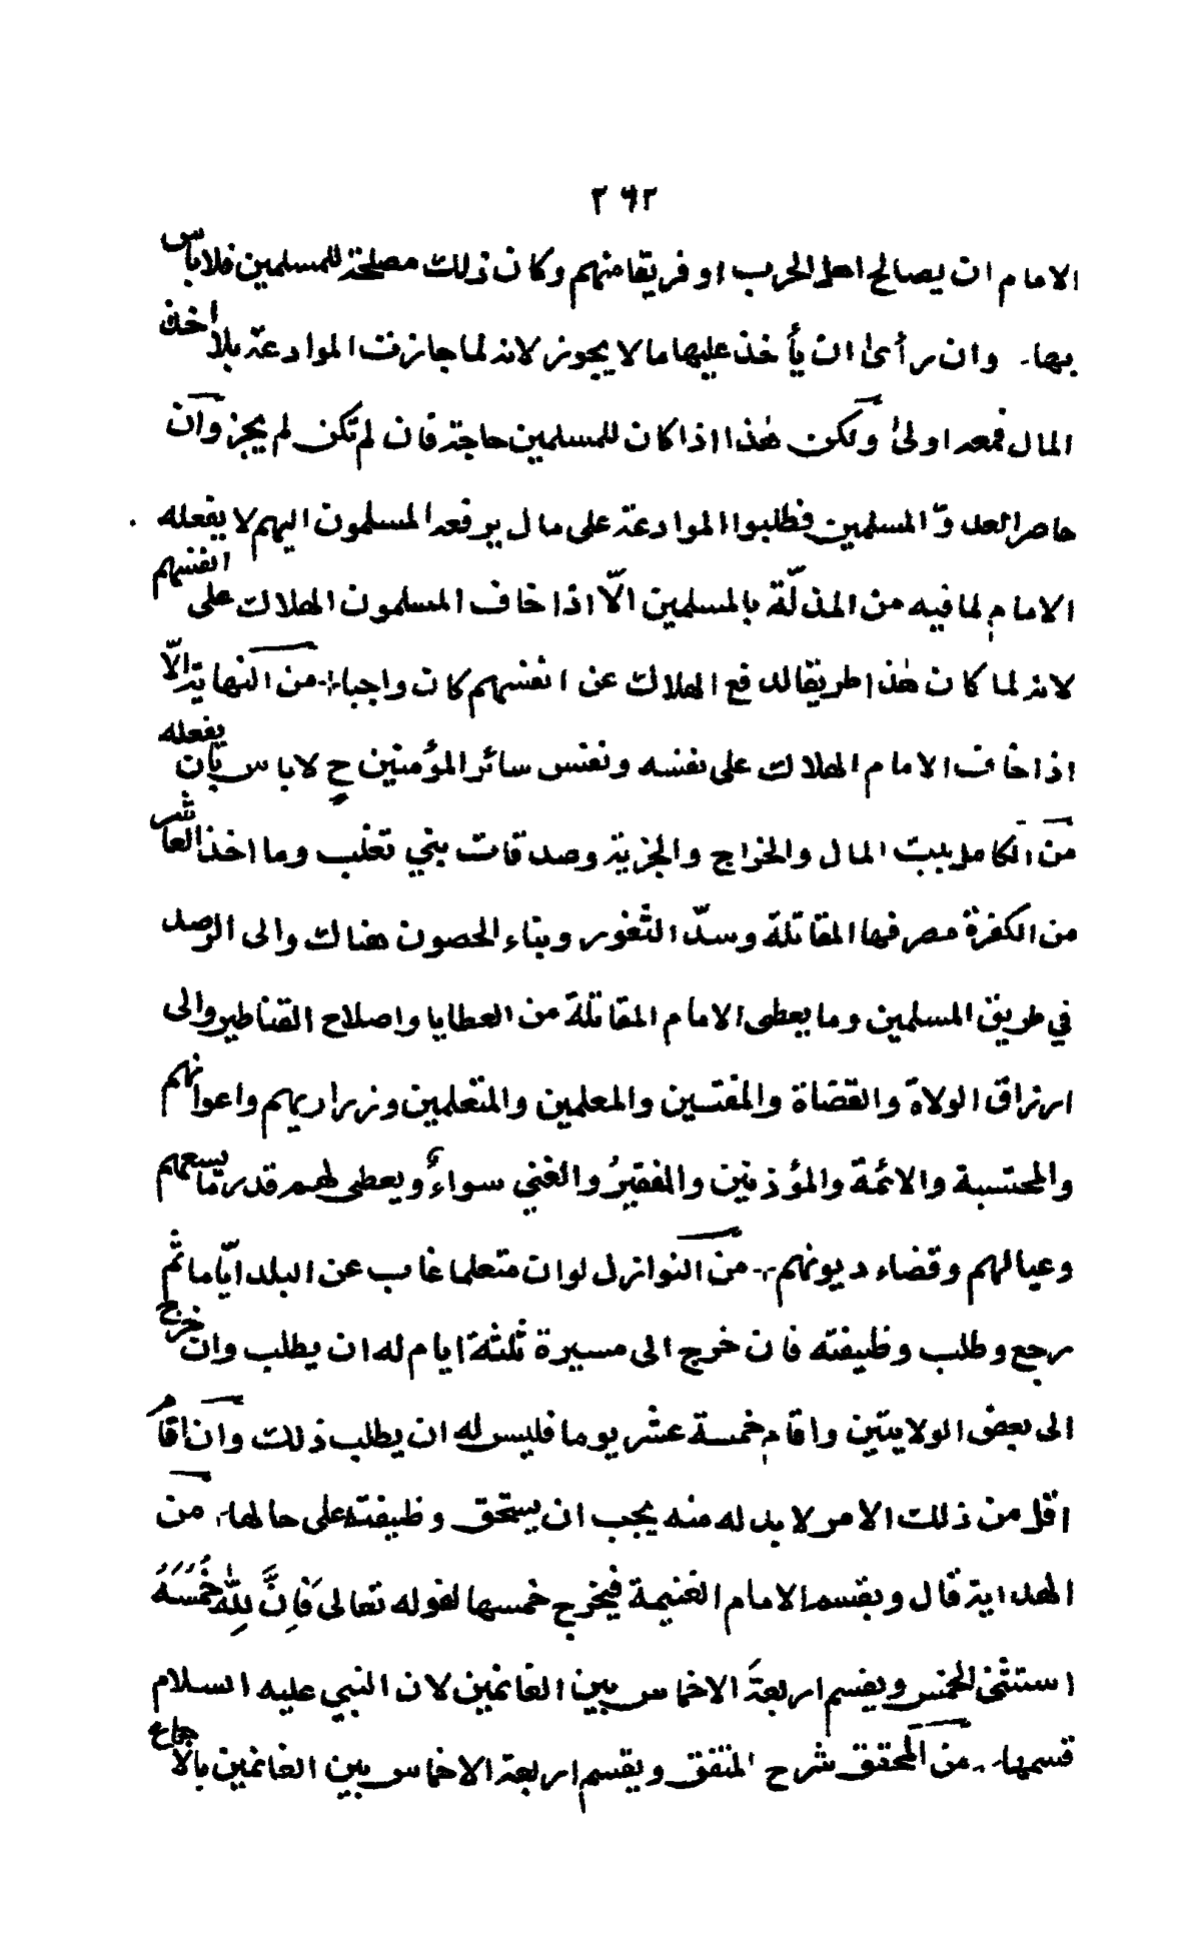 ٢٦٢
الامام ان يصالح اهل الحرب او فريقا منهم وكان ذلك مصلحة للمسلمين فلا باس
بها۔ وان رأى ان يأخذ عليها مالا يجوز لانه لما جازت الموادعة بلا اخذ
المال فمعه اولىٰ ولكن هٰذا اذا كان للمسلمين حاجة فان لم تكن لم يجز وان
حاصر العدوّ المسلمين فطلبوا الموادعة على مال يرفعه المسلمون اليهم لا يفعله
الامام لما فيه من المذلّة بالمسلمين الّا اذا خاف المسلمون الهلاك على انفسهم
لانه لما كان هٰذا طريقا لدفع الهلاك عن انفسهم كان واجبا۔ من النهاية الّا
اذا خاف الامام الهلاك على نفسه ونفس سائر المؤمنين ح لا باس بان يفعله
من الكامل بيت المال والخراج والجزية وصدقات بني تغلب وما اخذ العاشر
من الكفرة مصرفها المقاتلة وسدّ الثغور وبناء الحصون هناك والى الرصد
في طريق المسلمين وما يعطى الامام المقاتلة من العطايا واصلاح القناطير والى
ارزاق الولاة والقضاة والمفتيين والمعلمين والمتعلمين وزراريهم واعوانهم
والمحتسبة والائمة والمؤذنين والفقيرُ والغني سواءٌ ويعطى لهم قدر ما يسعهم
وعيالهم وقضاء ديونهم۔ من النوازل لو ان متعلما غاب عن البلد ايّاما ثم
رجع وطلب وظيفته فان خرج الى مسيرة ثلثة ايام له ان يطلب وان خرج
الى بعض الولايتين واقام خمسة عشر يوما فليس له ان يطلب ذلك وان اقام
اقل من ذلك الامر لا بد له منه يجب ان يستحق وظيفته على حالها۔ من
الهداية قال ويقسم الامام الغنيمة فيخرج خمسها لقوله تعالى فَاِنَّ لِلّٰهِ خُمُسَهُ
استثنى الخمس ويقسم اربعةَ الاخماس بين الغانمين لان النبي عليه السلام
قسمها۔ من المحقق شرح المتفق ويقسم اربعة الاخماس بين الغانمين بالاجماع